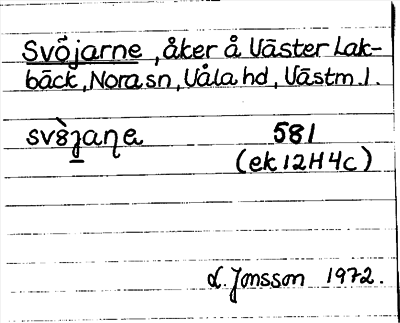 Svöjarne, åker å Väster Lak-
bäck, Nora sn, Våla hd, Västm. l.
581
(ek 12H4c)
L. Jonsson 1972.